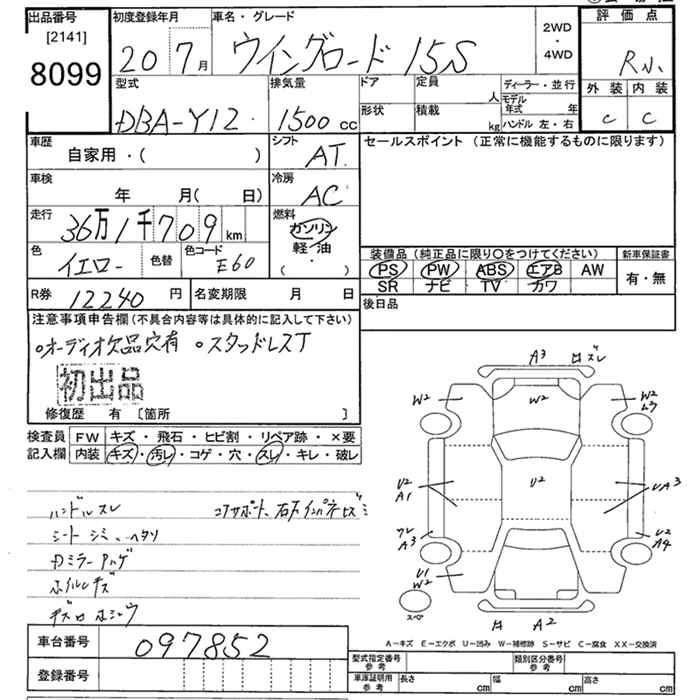 出品番号
[2141]
8099
初度登録年月
20 7月
車名・グレード
ウイングロード 15S
2WD
・
4WD
評価点
R小
外装 内装
C C
型式
DBA-Y12
排気量
1500 cc
ドア
形状
定員
人
積載
kg
ディーラー・並行
モデル年式 年
ハンドル 左・右
車歴
自家用・( )
シフト
AT
セールスポイント (正常に機能するものに限ります)
車検
年 月( 日)
冷房
AC
走行
36万1千709 km
燃料
ガソリン
軽・油
・
( )
色
イエロー
色替
色コード
E60
装備品 (純正品に限り○をつけてください)
PS PW ABS エアB AW
SR ナビ TV カワ
新車保証書
有・無
R券
12240 円
名変期限 月 日
後日品
注意事項申告欄 (不具合内容等は具体的に記入して下さい)
○オーディオ欠品穴有 ○スタッドレスT
初出品
修復歴 有 [箇所 ]
検査員
記入欄
FW キズ・飛石・ヒビ割・リペア跡・×要
内装 キズ・汚レ・コゲ・穴・スレ・キレ・破レ
ハンドルスレ
シートシミ、ヘタリ
ホイルキズ
A3
W2 W2 W2
U2
A1
U2
UA3
A3
U2
A4
U1
W2
スペア
A2
A－キズ E－エクボ U－凹み W－補修跡 S－サビ C－腐食 XX－交換済
車台番号
097852
登録番号
型式指定番号
参考
類別区分番号
参考
車庫証明用
参考
長さ cm 幅 cm 高さ cm